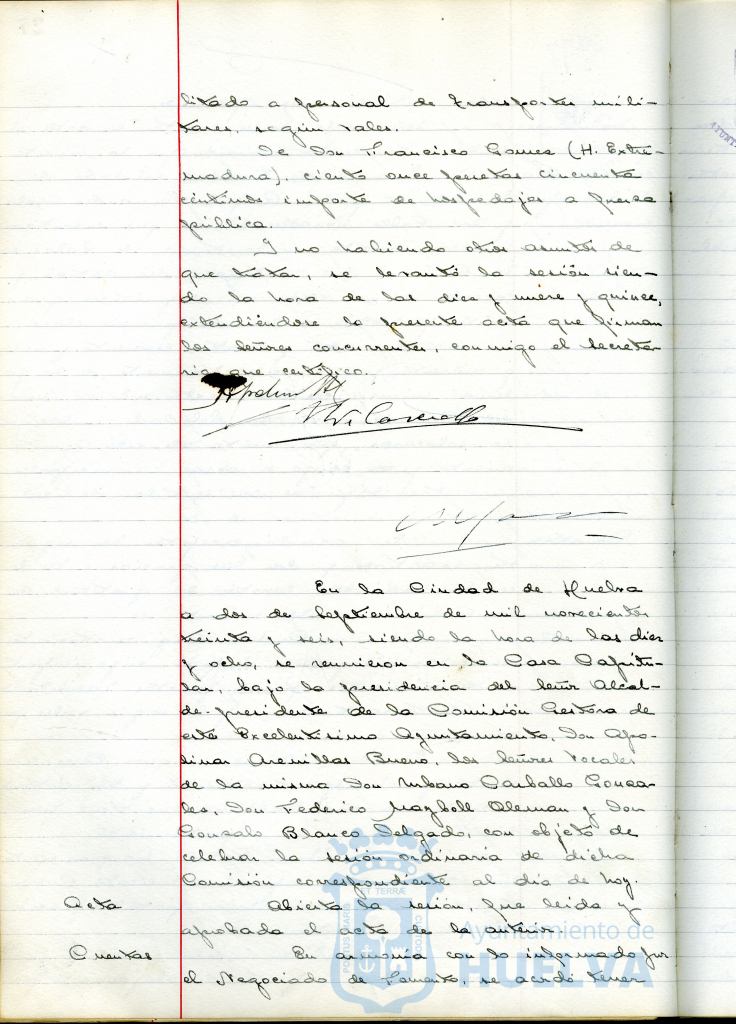 litado a personal de transportes mili-
tares, según vales.
De Don Francisco Gomez (H. Extre-
madura), ciento once pesetas cincuenta
céntimos importe de hospedajes a fuerza
pública.
Y no habiendo otros asuntos de
que tratar, se levantó la sesión sien-
do la hora de las diez y nueve y quince,
extendiéndose la presente acta que firman
los Señores concurrentes, conmigo el secreta-
rio que certifico.
En la Ciudad de Huelva
a dos de Septiembre de mil novecientos
treinta y seis, siendo la hora de las diez
y ocho, se reunieron en la Casa Capitu-
lar, bajo la presidencia del Señor Alcal-
de-presidente de la Comisión Gestora de
este Excelentísimo Ayuntamiento, Don Apo-
linar Arenillas Bueno, los Señores Vocales
de la misma Don Urbano Carballo Gonza-
les, Don Federico Mayboll Aleman y Don
Gonzalo Blanco Delgado, con objeto de
celebrar la sesión ordinaria de dicha
Comisión correspondiente al día de hoy.
Acta Abierta la sesión, fue leida y
aprobada el acta de la anterior.
Cuentas En armonía con lo informado por
el Negociado de Fomento, se acordó tener
Ayuntamiento de
HUELVA